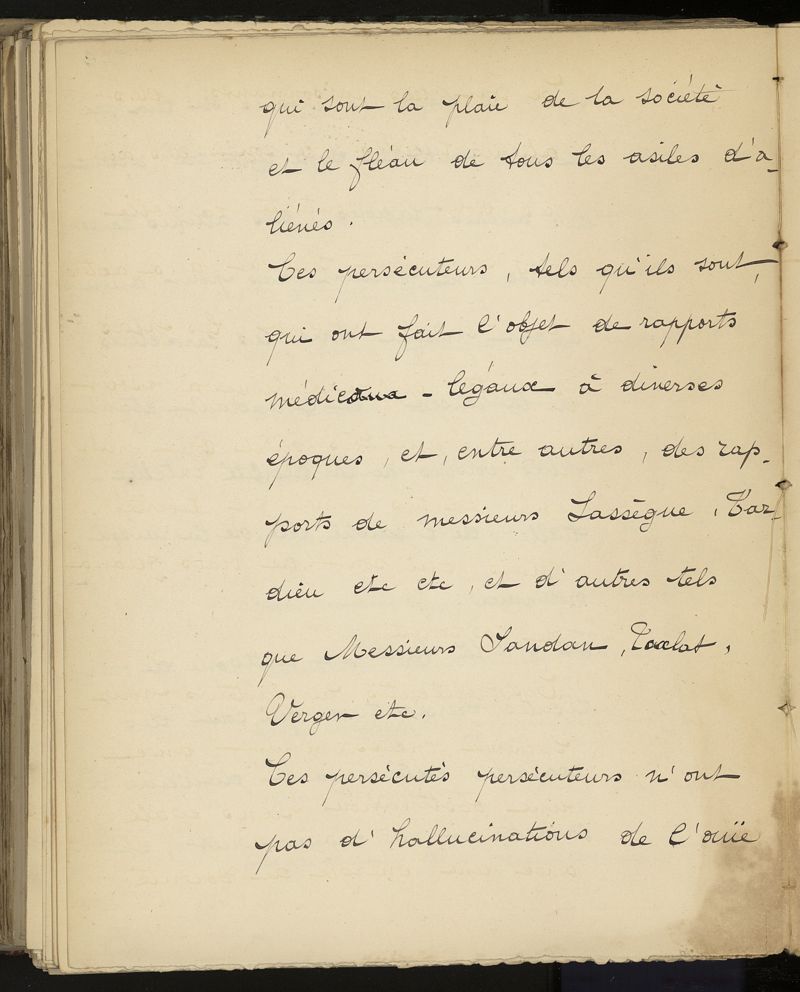 qui sont la plaie de la société
et le fléau de tous les asiles d'a-
liénés.
Ces persécuteurs, tels qu'ils sont,
qui ont fait l'objet de rapports
médicaux - légaux à diverses
époques, et, entre autres, des rap-
ports de messieurs Lassègue, Tar-
dieu etc etc, et d'autres tels
que Messieurs Sandan,
Verger etc.
Ces persécutés persécuteurs n'ont
pas d'hallucinations de l'ouïe